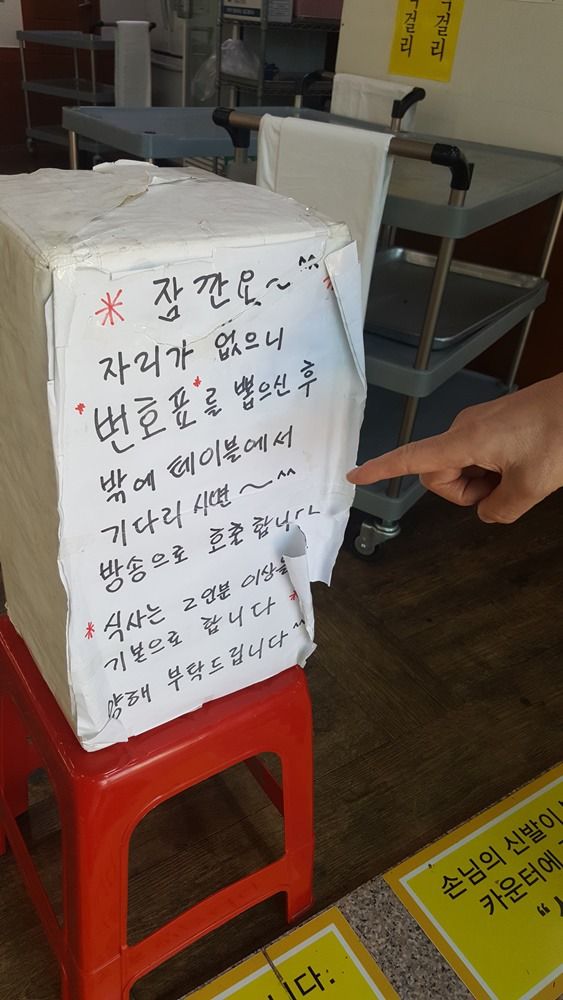 걸리
걸리
* 잠깐요~ ^^ *
자리가 없으니
*번호표*를 뽑으신 후
밖에 테이블에서
기다리시면~^^
방송으로 호출합니다
* 식사는 2인분 이상을
기본으로 합니다 *
양해 부탁드립니다^^
손님의 신발이
카운터에
"
니다.